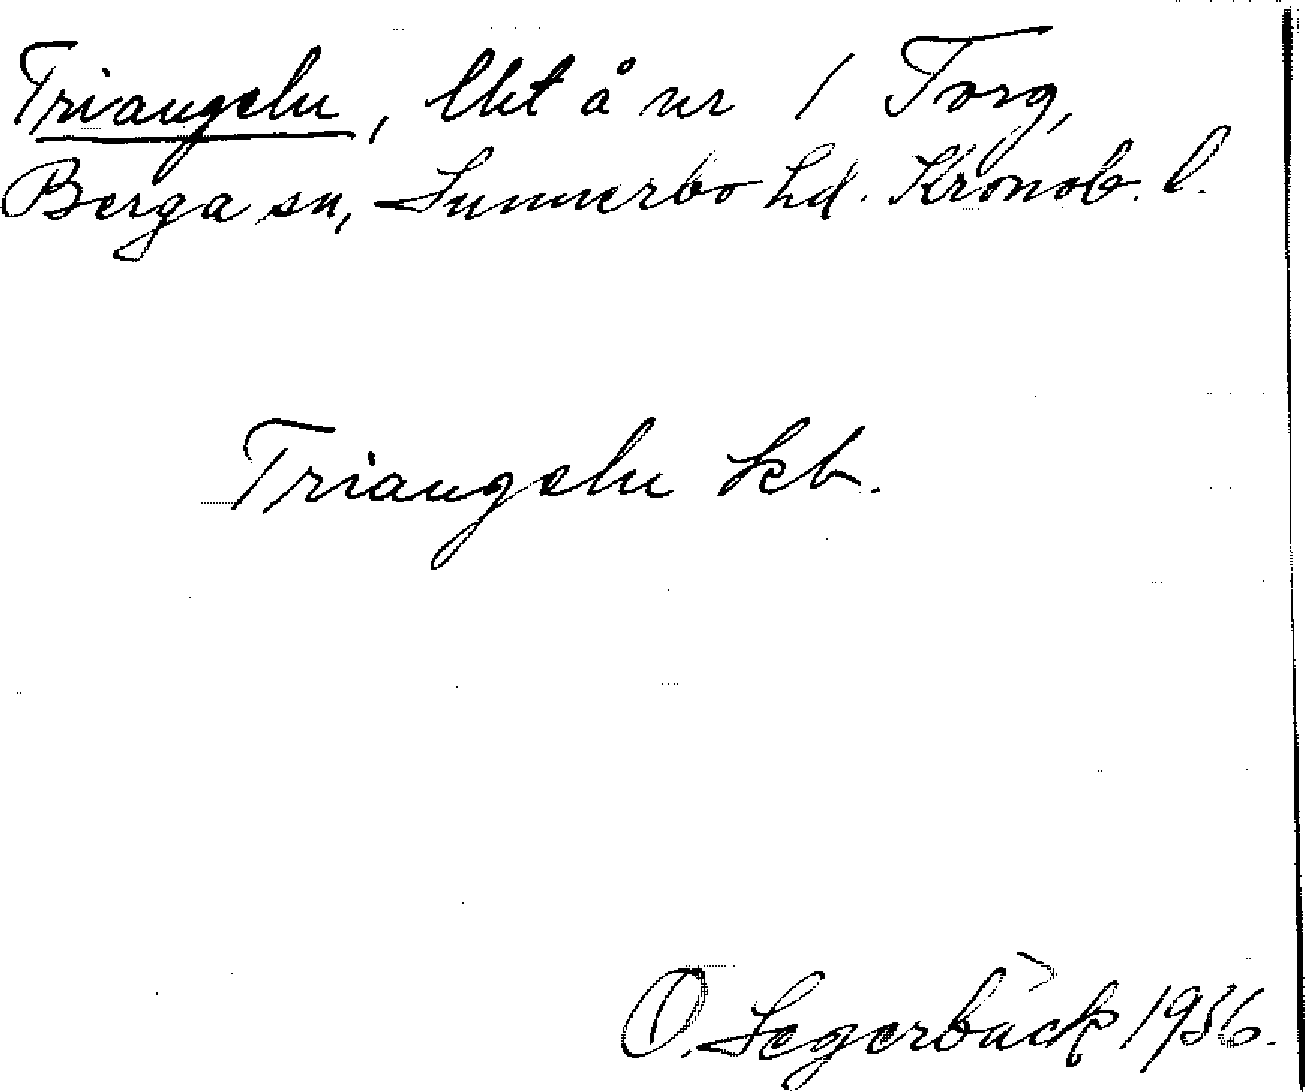 Triangeln, lht å nr 1 Torg,
Berga sn, Sunnerbo hd. Kronob. l.
Triangeln kb.
O. Segerbäck 1936.